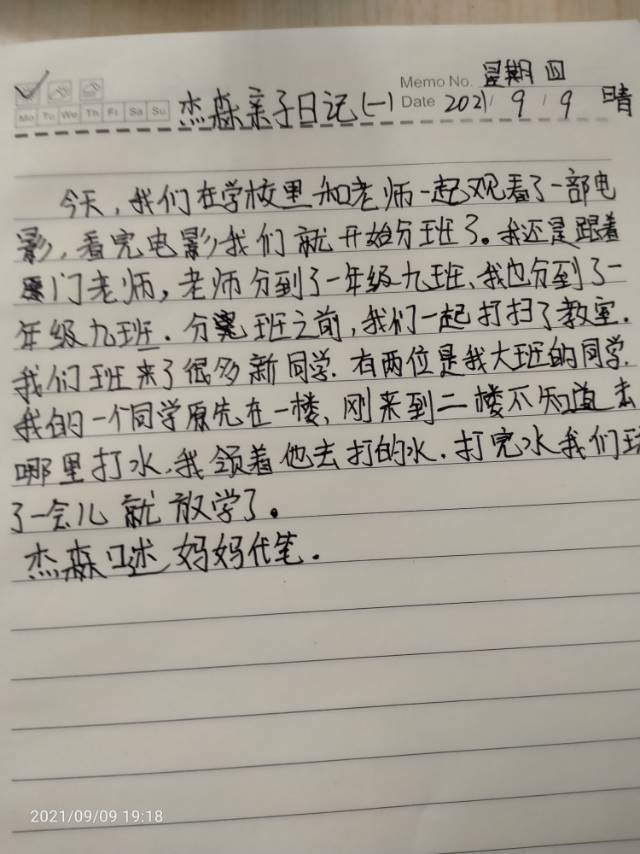 Memo No. 星期四
Mo Tu We Th Fr Sa Su
杰森亲子日记(一) Date 2021/9/9 晴
今天,我们在学校里和老师一起观看了一部电
影,看完电影我们就开始分班了。我还是跟着
门老师,老师分到了一年级九班、我也分到了一
年级九班.分完班之前,我们一起打扫了教室.
我们班来了很多新同学.有两位是我大班的同学.
我的一个同学原先在一楼、刚来到二楼不知道去
哪里打水.我领着他去打的水.打完水我们玩
了一会儿就放学了。
杰森口述 妈妈代笔.
2021/09/09 19:18